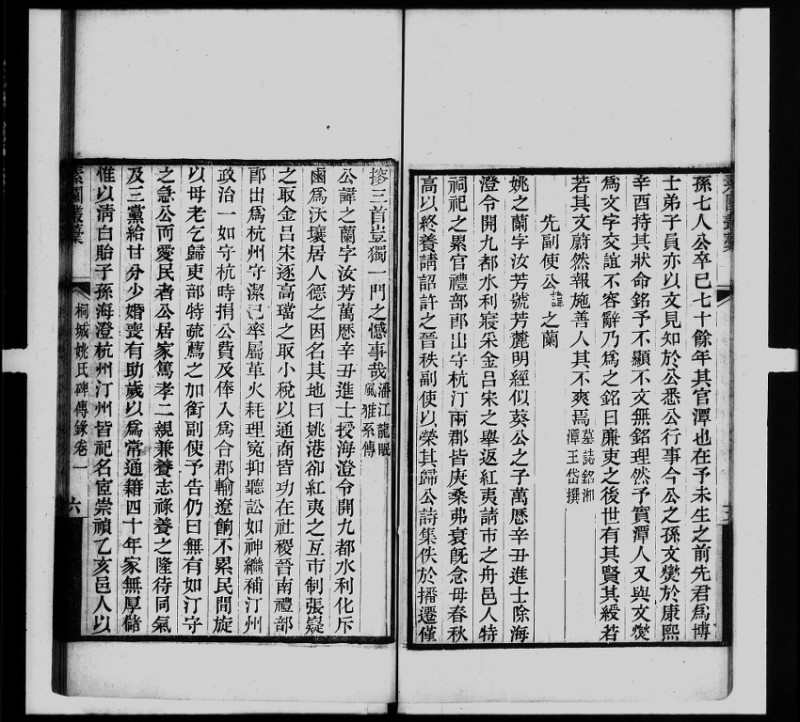 孫七人公卒已七十餘年其官潭也在予未生之前先君為博
士弟子員亦以文見知於公悉公行事今公之孫文燮於康熙
辛酉持其狀命銘予不顯不文無銘理然予實潭人又與文燮
為文字交誼不容辭乃為之銘曰廉吏之後世有其賢其綬若
若其文蔚然報施善人其不爽焉墓誌銘湘潭王岱撰
先副使公諱之蘭
姚之蘭字汝芳號芳麓明經似葵公之子萬厯辛丑進士除海
澄令開九都水利寢采金呂宋之舉返紅夷請市之舟邑人特
祠祀之累官禮部郎出守杭汀兩郡皆庚桑弗衰旣念母春秋
高以終養請詔許之晉秩副使以榮其歸公詩集佚於播遷僅
搎三首豈獨一門之憾事哉潘江龍眠風雅系傳
公諱之蘭字汝芳萬厯辛丑進士授海澄令開九都水利化斥
鹵為沃壤居人德之因名其地曰姚港卻紅夷之互市制張嶷
之取金呂宋逐高璫之取小稅以通商皆功在社稷晉南禮部
郎出為杭州守潔己率屬革火耗理寃抑聽訟如神繼補汀州
政治一如守杭時捐公費及俸入為合郡輸遼餉不累民間旋
以母老乞歸吏部特疏薦之加銜副使予告仍曰無有如汀守
之急公而愛民者公居家篤孝二親兼養志祿養之隆待同氣
及三黨給甘分少婚喪有助歲以為常通籍四十年家無厚儲
惟以淸白貽子孫海澄杭州汀州皆祀名宦崇禎乙亥邑人以
桐城姚氏碑傳錄卷一
六